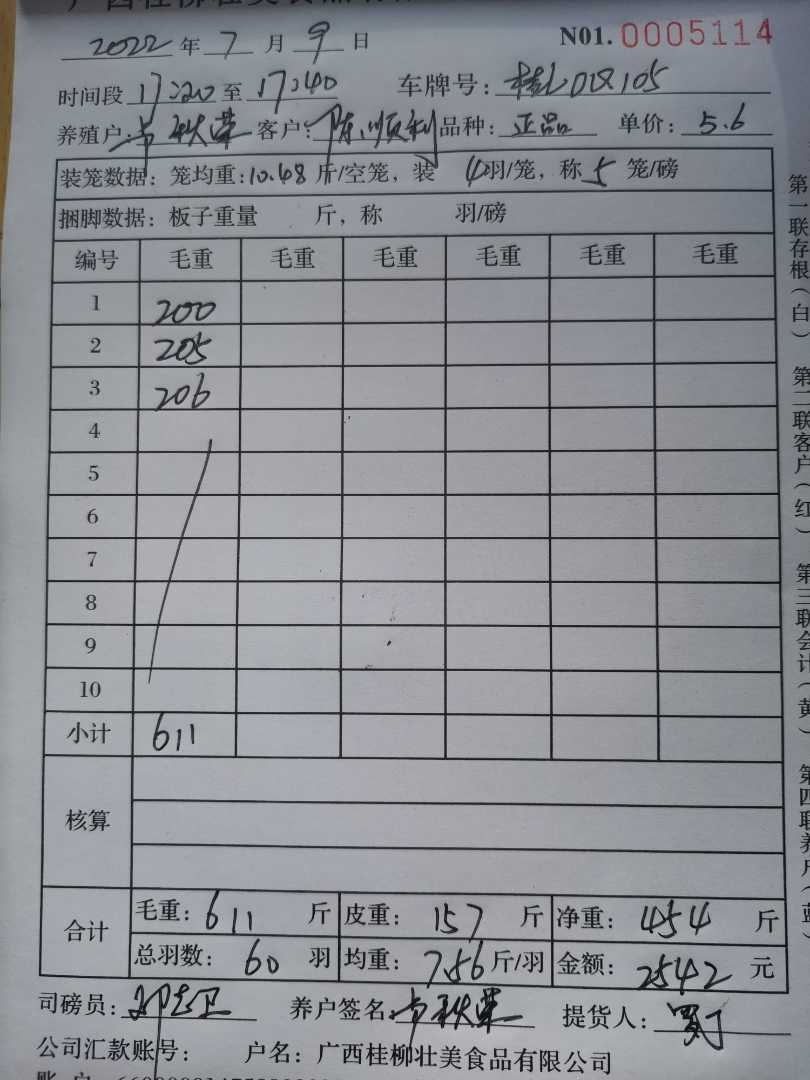 2022年7月9日 N01.0005114
时间段17:20至17:40 车牌号:
养殖户: 秋荣 客户: 陈顺利 品种: 正品 单价: 5.6
装笼数据: 笼均重:10.48斤/空笼, 装 4羽/笼, 称5笼/磅
捆脚数据: 板子重量 斤, 称 羽/磅
编号 毛重 毛重 毛重 毛重 毛重 毛重
1 200
2 205
3 206
4
5
6
7
8
9
10
小计 611
核算
合计 毛重: 611 斤 皮重: 157 斤 净重: 454 斤
总羽数: 60 羽 均重: 7.56斤/羽 金额: 2542 元
司磅员: 养户签名: 秋荣 提货人:
公司汇款账号: 户名: 广西桂柳壮美食品有限公司
第一联存根(白) 第二联客户(红) 第三联会计(黄) 第四联养户(蓝)